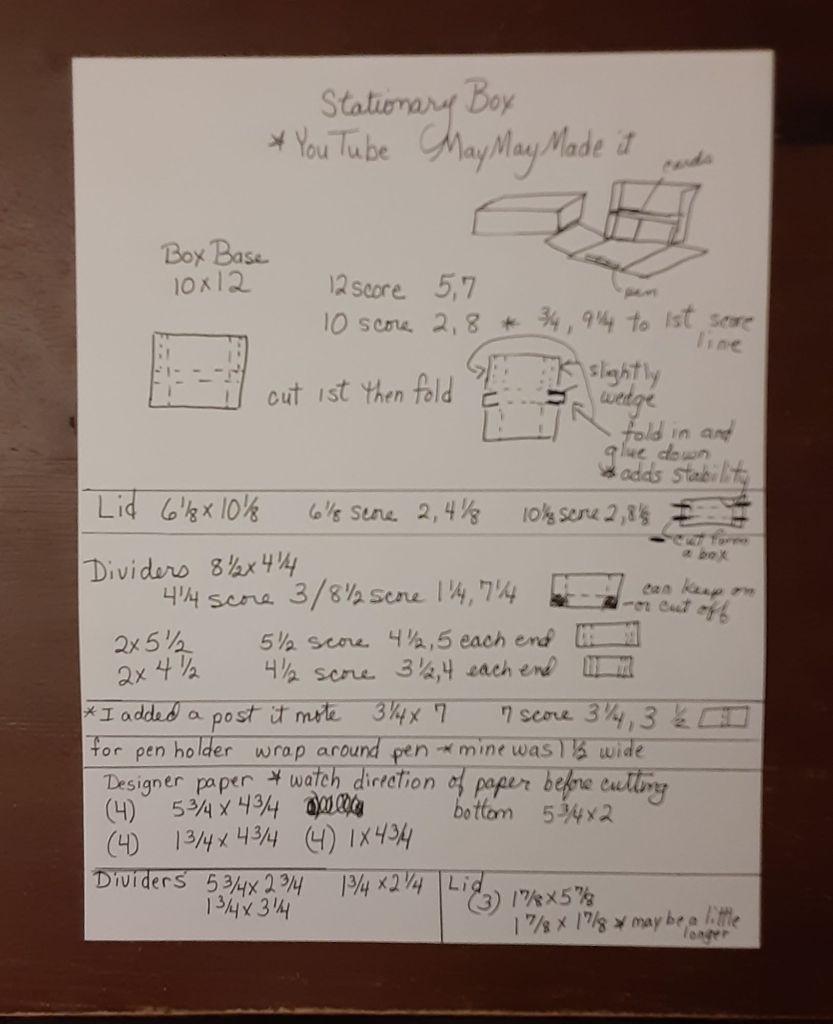 Stationary Box
* YouTube MayMayMade it
cards
pen
Box Base
10 x 12
12 score 5,7
10 score 2, 8 * 3/4, 9 1/4 to 1st score
line
cut 1st then fold
slightly
wedge
fold in and
glue down
* adds stability
Lid 6 1/8 x 10 1/8 6 1/8 score 2, 4 1/8 10 1/8 score 2, 8 1/8
cut form
a box
Dividers 8 1/2 x 4 1/4
4 1/4 score 3 / 8 1/2 score 1 1/4, 7 1/4
can keep on
or cut off
2 x 5 1/2 5 1/2 score 4 1/2, 5 each end
2 x 4 1/2 4 1/2 score 3 1/2, 4 each end
* I added a post it note 3 1/4 x 7 7 score 3 1/4, 3 1/2
for pen holder wrap around pen * mine was 1 1/2 wide
Designer paper * watch direction of paper before cutting
(4) 5 3/4 x 4 3/4 bottom 5 3/4 x 2
(4) 1 3/4 x 4 3/4 (4) 1 x 4 3/4
Dividers 5 3/4 x 2 3/4 1 3/4 x 2 1/4
1 3/4 x 3 1/4
Lid
(3) 1 7/8 x 5 7/8
1 7/8 x 1 7/8 * may be a little
longer